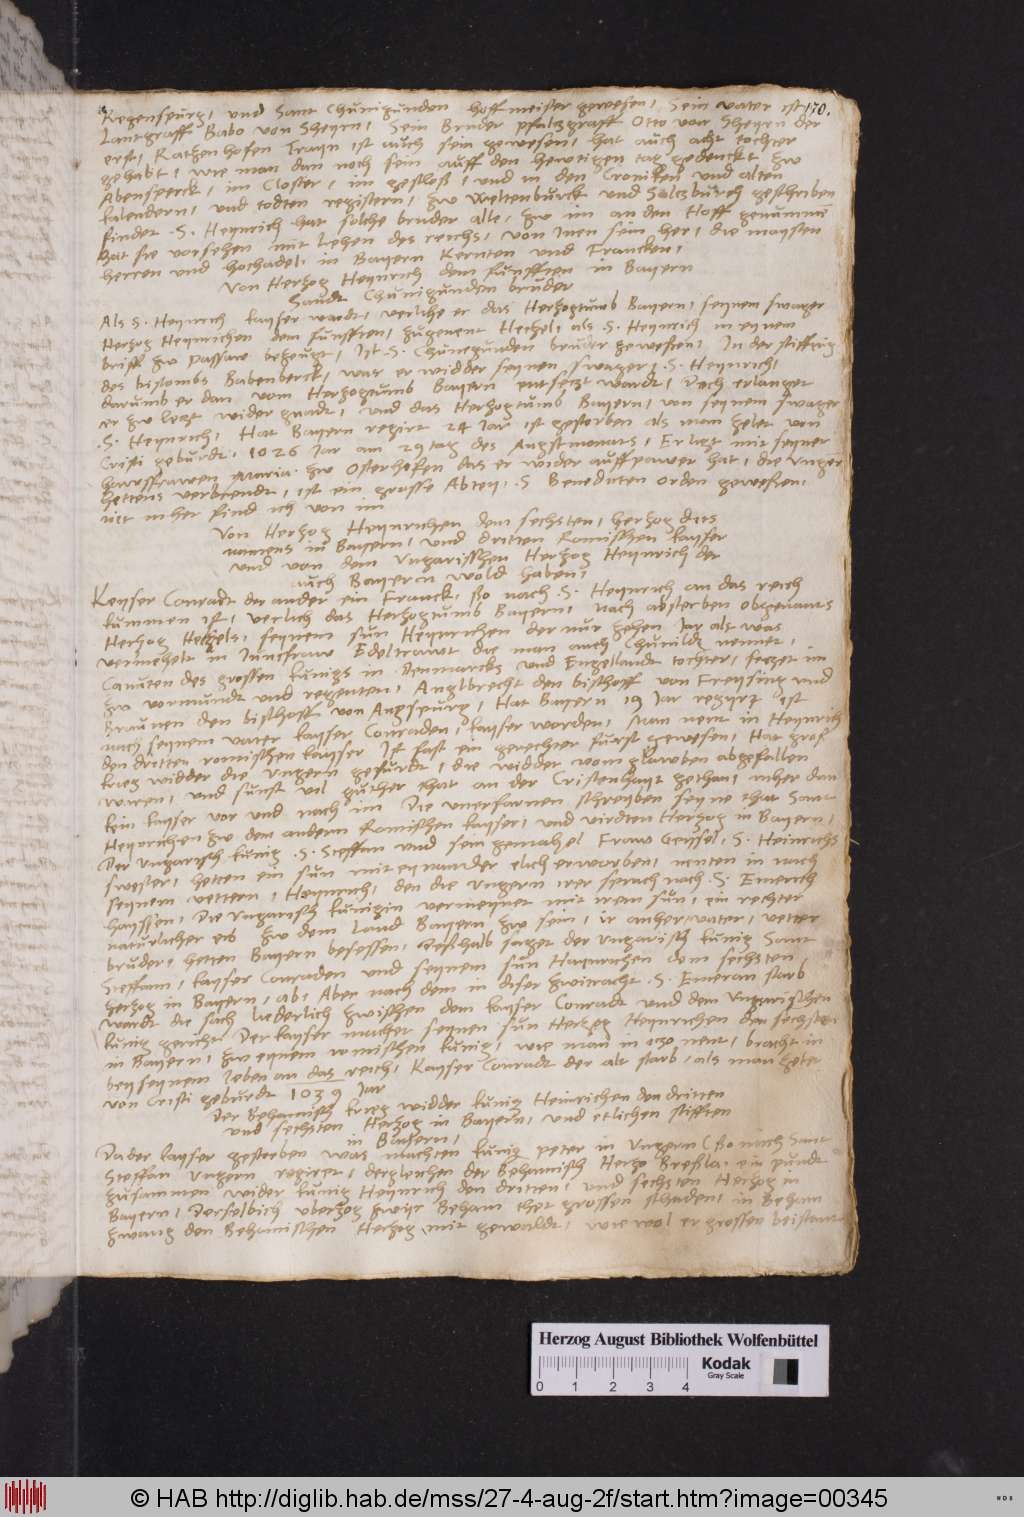 170.
Regenspurg, und Sant Chunigunden hoffmeister gewesen, Sein vater ist
Lantgraff Babo von Sheyrn, Sein Bruder pfaltzgraff Otto von Sheyrn der
erst, Ratzenhofen Trayn ist auch sein gewesen, hat auch acht tochter
gehabt, wie man dan noch sein auff den hewtigen tag gedenckt zw
Abensperck, im Closter, im geschloß, und in den Croniken und alten
kalendern, und todten registern, zw Weltenburck und Saltzburch geschriben
findet .S. Heynrich hat solche bruder alle, zw im an den Hoff genummen
Hat sie vorsehen mit Lehen des reichs, von Inen sein her, die maysten
herren und hochadel, in Bayern Kernten und Francken,
Von Herzog Heynrich dem funfften in Bayern
Sandt Chunigunden bruder
Als S. Heynrich kayser wardt, verliche er das Herzogtumb Bayern, seynem swager
Herzog Heynrichen dem funfften, zugenent Hechel, als .S. Heynrich in eynem
briff zw Passaw bezeugt, Ist .S. Chunegunden bruder gewesen, In der stifftung
des bistombs Babenberck, war er widder seynen swager .S. Heynrich,
darumb er dan vom Herzogtumb Bayern entsetzt wardt, Doch erlanget
er zw letzt wider gnadt, und das Herzogtumb Bayern, von seynem swager
.S. Heynrich, Hat Bayern regirt 24 Jar ist gestorben als man zelet von
Cristi geburdt, 1026 Jar am 29 tag des Augstmonats, Er ligt mit seyner
hawsfrawen Maria zw Osterhofen das er wider auffpawet hat, die Unger
hettens verbrendt, ist ein grosse Abtey, .S Benedicten orden gewesen,
nit mher find ich von im
Von Herzog Heynrichen dem sechsten, herzog des
namens in Bayern, und dritten Romisschen kayser
und von dem Ungarisschen Herzog Heynrich der
auch Bayern wold haben,
Keyser Conradt der ander ein Franck, so nach .S. Heynrich an das reich
kummen ist, verlich das Herzogtumb Bayern, nach absterben obgenants
Herzog Hechels, seynem sun Heynrichen der nur zehen Jar alt was
vermehelt in Junckfraw Edeltrawt die man auch Chunildt nennet,
Canuten des grossen kunigs in Denmarcks und Engellandt tochter, setzet im
zw vormundt und regenten, Anglbrecht den bischoff von Freysing und
Braunen den bisthoff von Augspurg, Hat Bayern 19 Jar regyrt ist
nach seynem vater kayser Conraden, kayser worden, Man nent in Heynrich
den dritten romischen kayser Ist fast ein gerechter furst gewesen, Hat groß
krieg widder die Ungern gefurdt, die widder vom glawben abgefallen
waren, und sunst vil guther that an der Cristenhayt gethan, mher dan
kein kayser vor und nach im Die unerfarnen schreyben seyne that Sant
Heynrichen zw dem andern Romischen kayser, und virdten Herzog in Bayern,
Der Ungarisch kunig .S. Steffan und sein gemahel Fraw Geysel, .S. Heinrichs
swester, hetten ein sun mit eynander elich erworben, nenten in nach
seynem vettern, Heynrich, den die Ungern irer sprach nach .S. Emerich
hayssen, Die Ungarisch kunigin vermeynet mit irem sun, ein rechter
naturlicher erb zw dem land Bayern zw sein, ir anher, vater, vetter
bruder, hetten Bayern besessen, Deßhalb saget der Ungarisch kunig Sant
Steffann, kayser Conraden und seynem sun Heynrichen dem sechsten
herzog in Bayern, ab, Aber nach dem in diser zwitracht .S. Emeran starb
wardt die sach liederlich zwischen dem kayser Conradt und dem Ungarischen
kunig gericht Der kayser machet seynen sun Herzog Heynrichen den sechsten
in Bayern, zw eynem romischen kunig, wie man in izo nent, bracht in
bey seynem leben an das reich, Kayser Conradt der alt starb, als man zelet
von Cristi geburdt 1039 Jar
Der Behamisch krieg widder kunig Heinrichen den dritten
und sechsten Herzog in Bayern, und etlichen stifften
in Bayern,
Da der kayser gestorben was machten kunig peter in Ungern (so nach Sant
Steffan Ungern regiret, dergleichen der Behamisch Herzo Bresla, ein pundt
zusammen wider kunig Heynrich den dritten, und sechsten Herzog in
Bayern, Derselbich uberzog zwyr Beham thet grossen schaden, in Beham
zwang den Behamischen Herzog mit gewaldt, wie wol er grossen beistant
Herzog August Bibliothek Wolfenbüttel
Kodak
Gray Scale
0 1 2 3 4
© HAB http://diglib.hab.de/mss/27-4-aug-2f/start.htm?image=00345